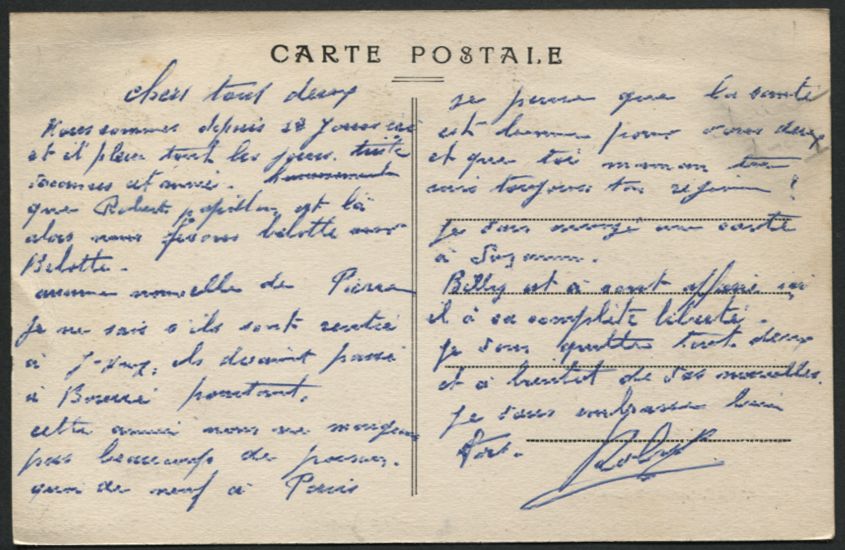 CARTE POSTALE
chers tous deux
Nous sommes depuis 12 jours ici
et il pleu tout les jours. triste
vacances cet année. heureusement
que Robert papillon est là
alors nous fesons belotte sur
Belotte.
aucune nouvelle de Pierre
je ne sais s'ils sont rentré
à ils devaient passé
à pourtant.
cette année nous ne mangeons
pas beaucoup de poisson.
quoi de neuf à Paris
je pense que la santé
est bonne pour vous deux
et que toi maman tu
suis toujours ton régime !
je vais envoyé une carte
à Suzanne.
Billy est à son affaire ici
il à sa complète liberté.
je vous quitte tout deux
et à bientot de vos nouvelles.
je vous embrasse bien
fort.